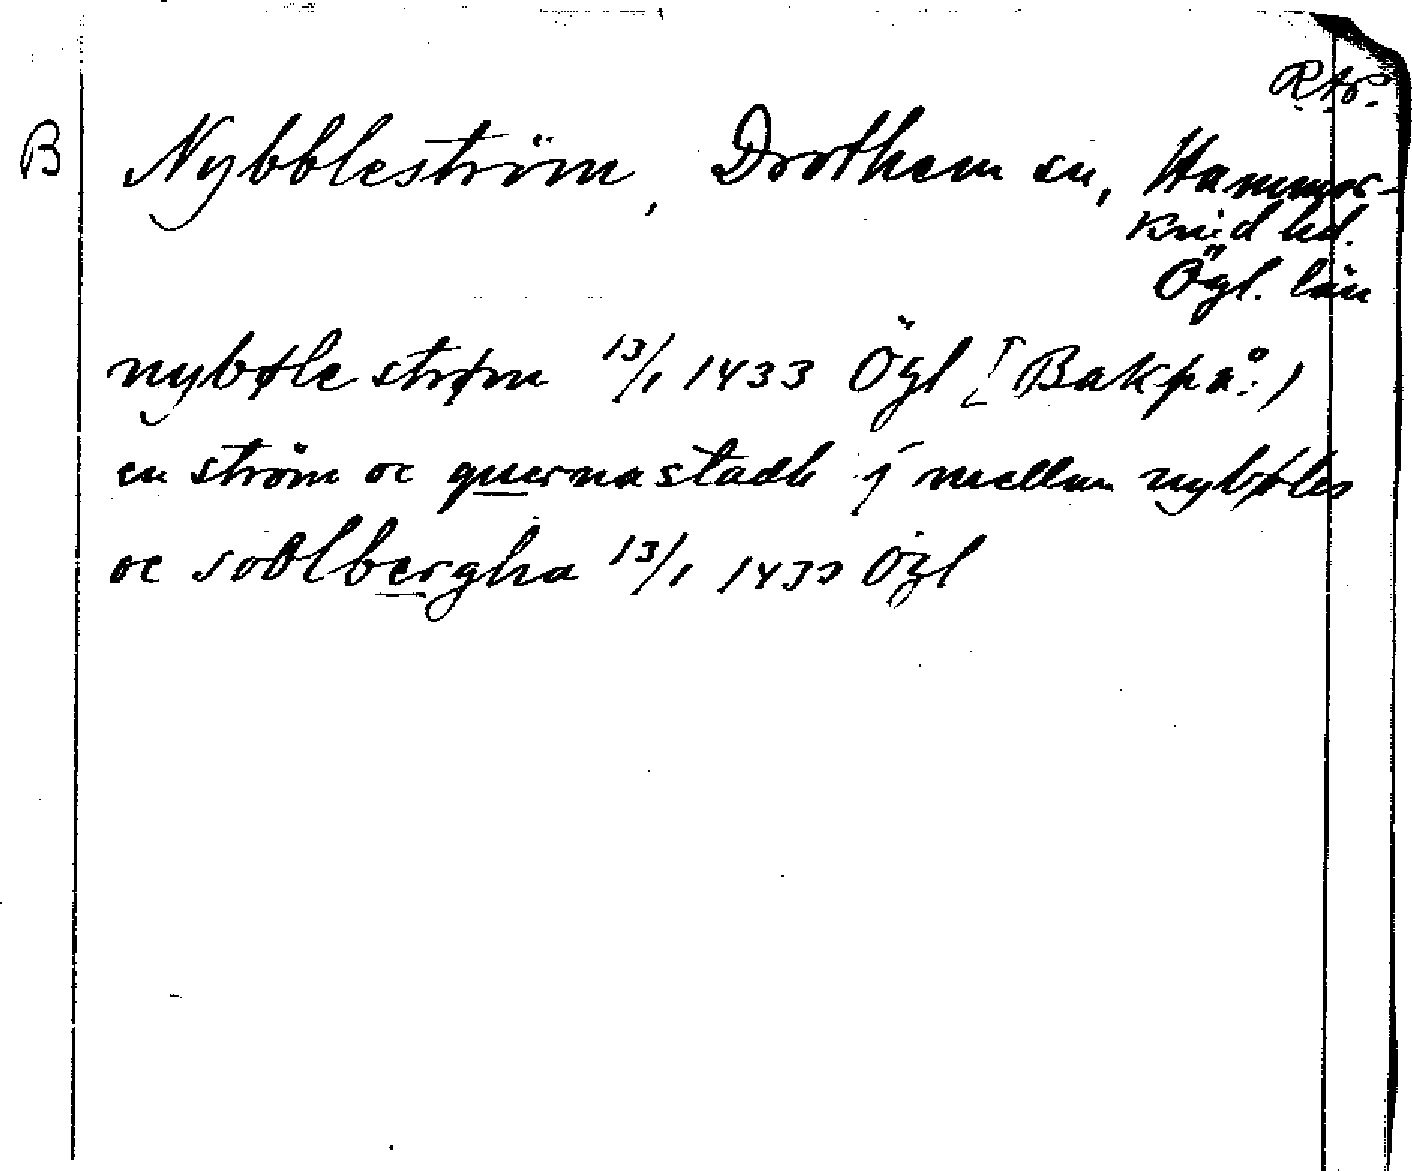 RAp.
B Nybbleström, Drothem sn, Hammer-
kind hd.
Ögl. län
nybøle strøm 13/1 1433 Ögl [Bakpå:)
en ström oc quernastadh j mellan nybøles
oc soolbergha 13/1 1433 Ögl